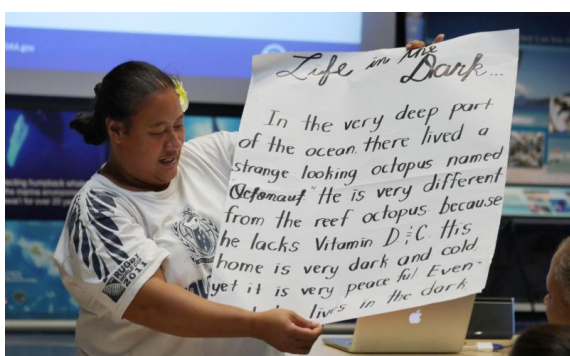 MAA.gov
Life in the
Dark...
In the very deep part
of the ocean. there lived a
strange looking octopus named
"Octonaut" He is very different
from the reef octopus. because
he lacks Vitamin D & C. His
home is very dark and cold,
yet it is very peaceful. Even-
lives in the dark
RUGBY
2011
humpback whales